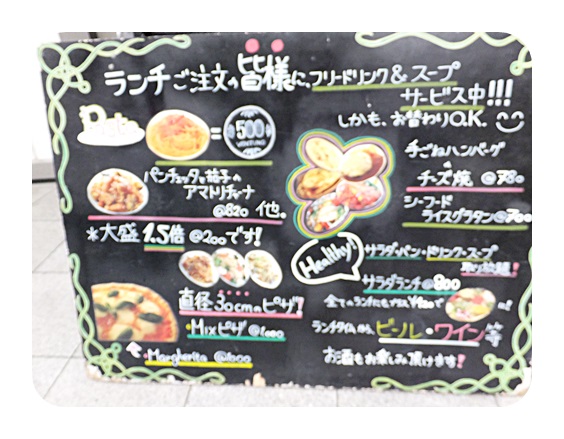 ランチご注文の皆様に、フリードリンク&スープ
サービス中!!!
しかも、お替わりO.K.
Pasta = 500
パンチェッタと茄子の
アマトリチャーナ
@820 他。
*大盛 1.5倍 @200です!
手ごねハンバーグ
チーズ焼 @780
シーフード
ライスグラタン@700
Healthy!
サラダ・パン・ドリンク・スープ
取り放題!
サラダランチ@800
全てのランチにもプラス¥420で
直径30cmのピザ!
・Mixピザ @1000
・Margherita @1000
ランチタイムから、ビール・ワイン等
お酒もお楽しみ頂けます!